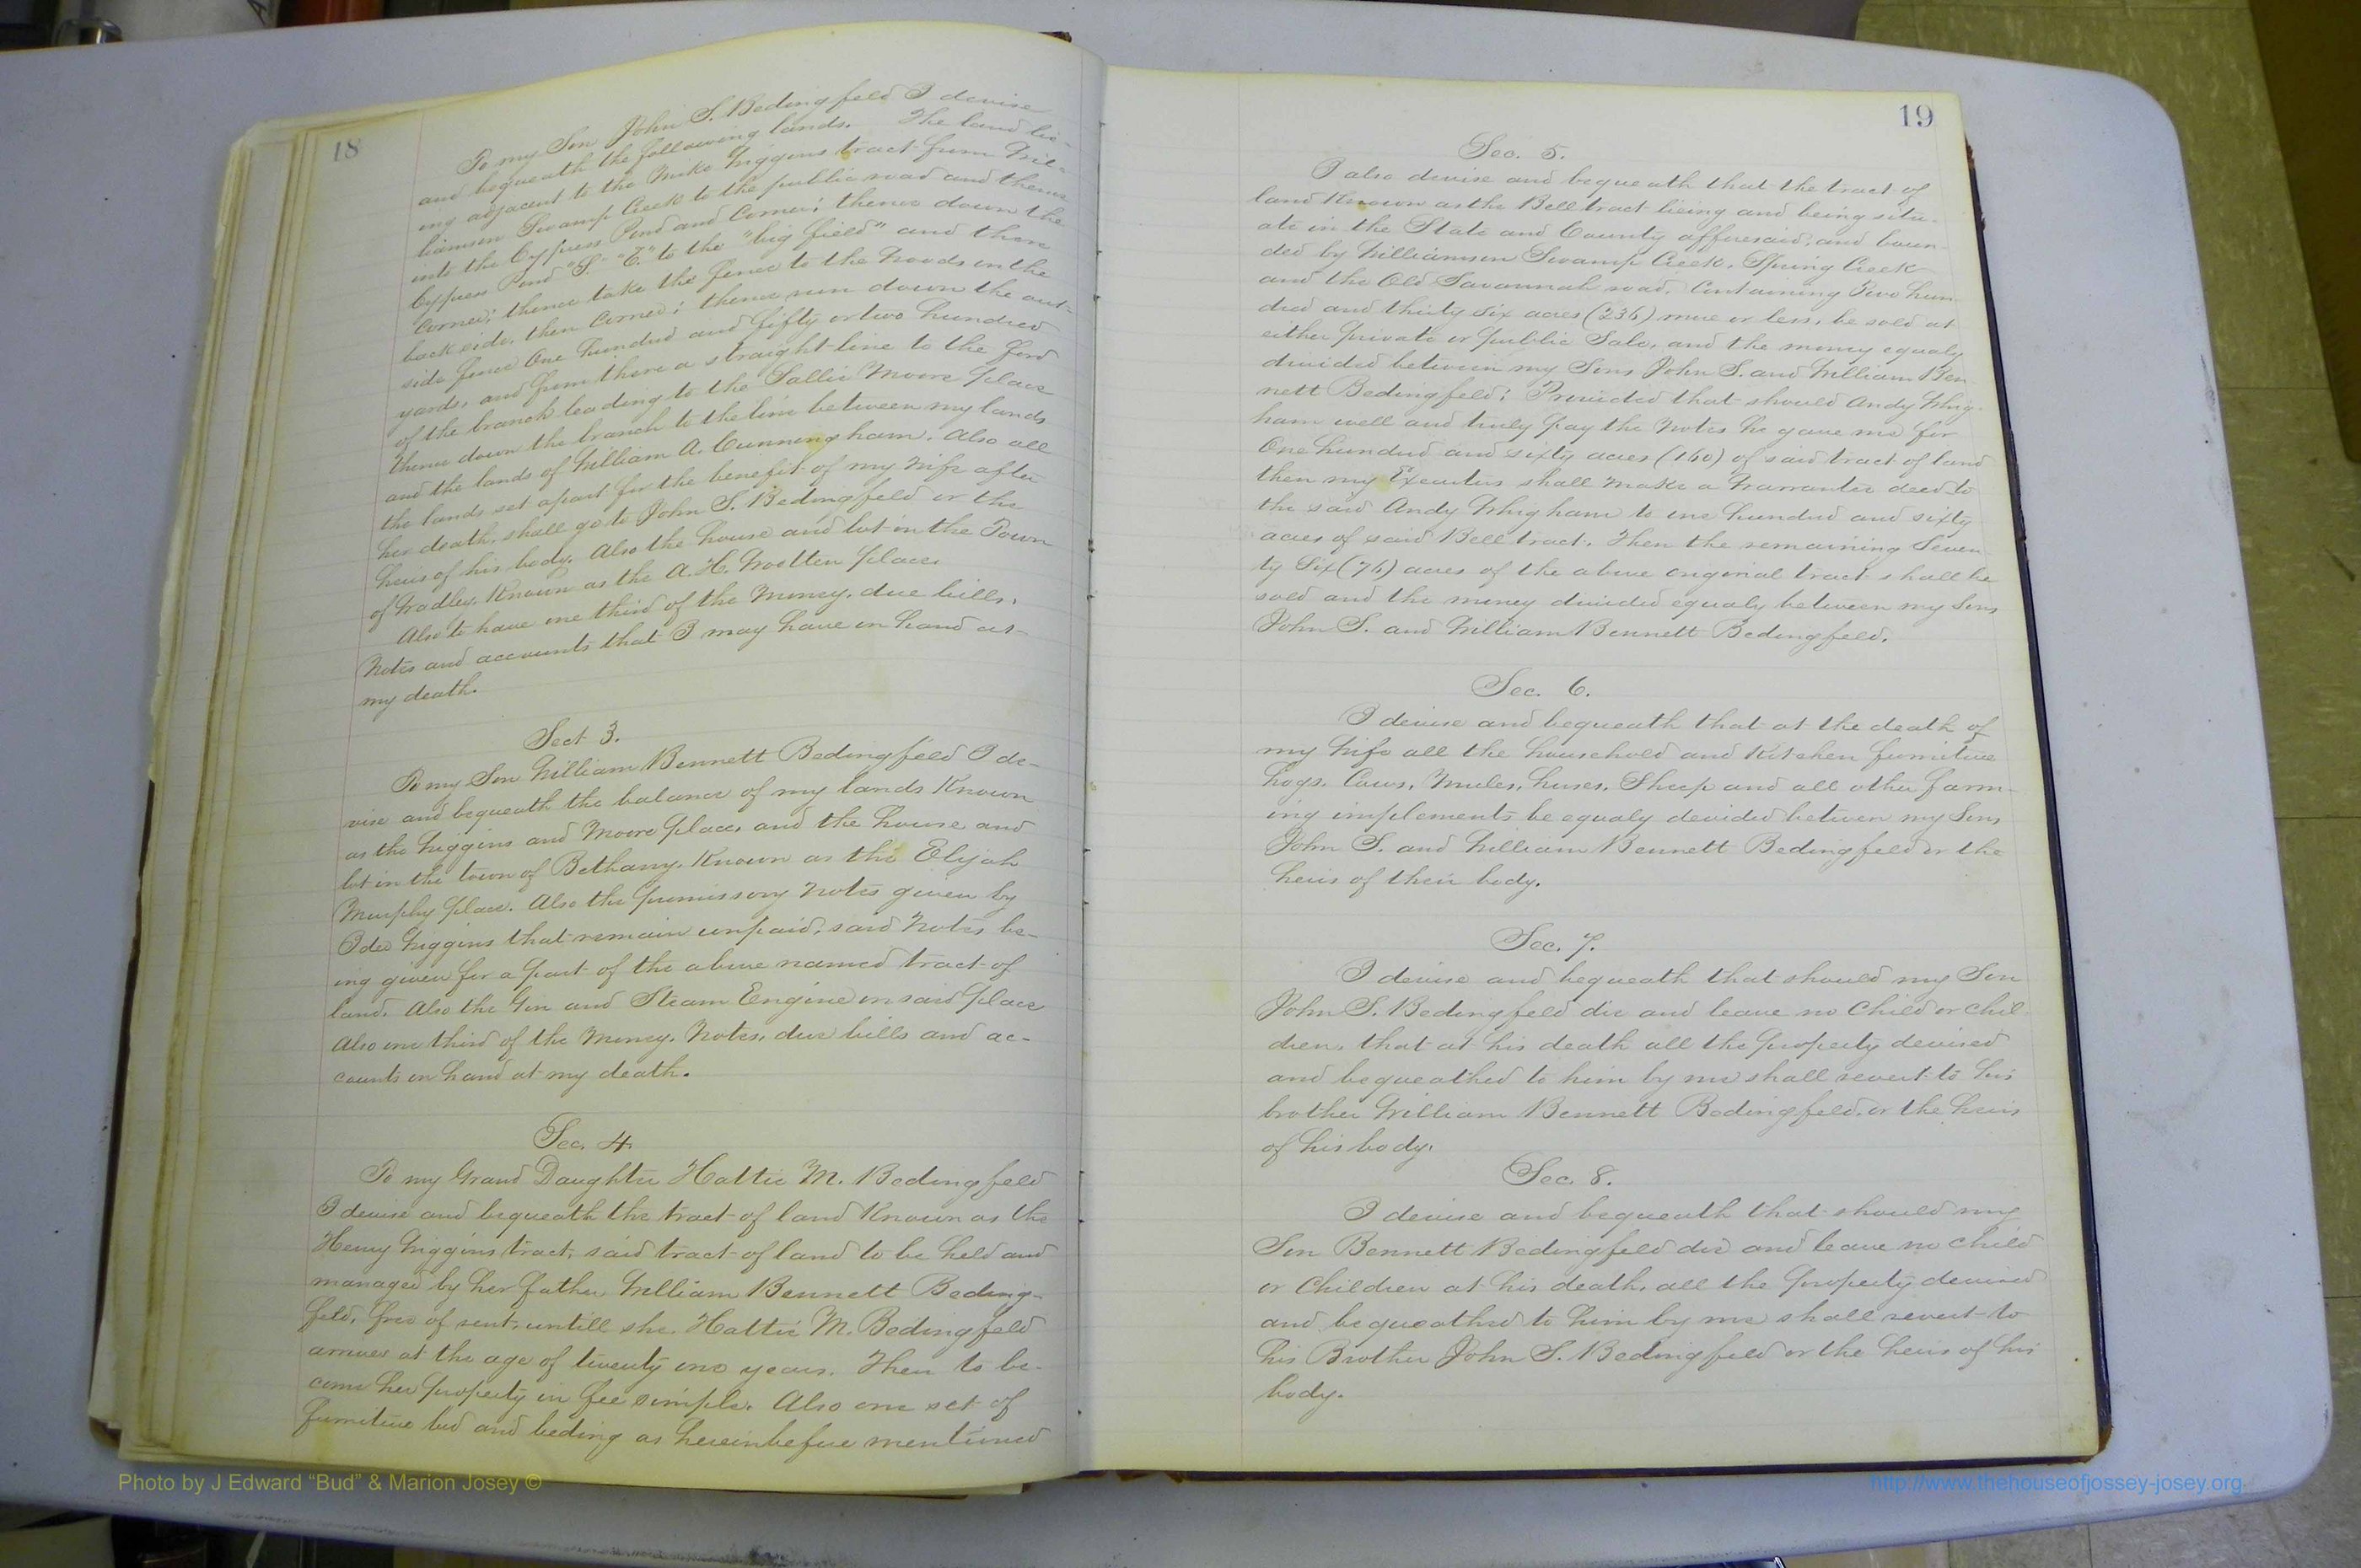 18
To my Son John S. Bedingfeld I devise
and bequeath the following lands. The land li-
ing adjacent to the Mike Wiggins tract from Wil-
liamson Swamp Creek to the public road and thence
into the Cypress Pond and Corner; thence down the
Cypress Pond "S." "E." to the "big field" and then
Corner; thence take the fence to the Woods on the
back side, then Corner; thence run down the out-
side fence One hundred and fifty or two hundred
yards, and from there a straight line to the ford
of the branch leading to the Sallie Moore place
thence down the branch to the line between my lands
and the lands of William A. Cunningham. Also all
the lands set apart for the benefit of my Wife after
her death, shall go to John S. Bedingfeld or the
heirs of his body. Also the house and lot in the Town
of Wadley, Known as the A. H. Wootten place.
Also to have one third of the Money, due bills,
Notes and accounts that I may have on hand at
my death.
Sect 3.
To my Son William Bennett Bedingfeld I de-
vise and bequeath the balance of my lands Known
as the Wiggins and Moore place, and the house and
lot in the town of Bethany, Known as the Elijah
Murphy place. Also the promissory Notes given by
Wiggins that remain unpaid, said Notes be-
ing given for a part of the above named tract of
land. Also the Gin and Steam Engine on said place
Also one third of the Money, Notes, due bills and ac-
counts on hand at my death.
Sec. 4.
To my Grand Daughter Hattie M. Bedingfeld
I devise and bequeath the tract of land Known as the
Henry Wiggins tract, said tract of land to be held and
managed by her father William Bennett Beding-
feld, free of rent, untill she, Hattie M. Bedingfeld
arrives at the age of twenty one years. Then to be-
come her property in fee simple. Also one set of
furniture bed and beding as hereinbefore mentioned
19
Sec. 5.
I also devise and bequeath that the tract of
land Known as the Bell tract lieing and being situ-
ate in the State and County afforesaid, and boun-
ded by Williamson Swamp Creek, Spring Creek
and the Old Savannah road, Containing Two hun-
dred and thirty six acres (236) more or less, be sold at
either private or public Sale, and the money equaly
divided between my Sons John S. and William Ben-
nett Bedingfeld; Provided that should Andy Whig-
ham well and truly pay the Notes he gave me for
One hundred and sixty acres (160) of said tract of land
then my Executors shall Make a Warrantee deed to
the said Andy Whigham to one hundred and sixty
acres of said Bell tract. Then the remaining Seven-
ty Six (76) acres of the above original tract shall be
sold and the money divided equaly between my Sons
John S. and William Bennett Bedingfeld.
Sec. 6.
I devise and bequeath that at the death of
my Wife all the household and Kitchen furniture
hogs, Cows, Mules, horses, Sheep and all other farm-
ing implements be equaly devided between my Sons
John S. and William Bennett Bedingfeld or the
heirs of their body.
Sec. 7.
I devise and bequeath that should my Son
John S. Bedingfeld die and leave no Child or chil-
dren, that at his death all the property devised
and bequeathed to him by me shall revert to his
brother William Bennett Bedingfeld, or the heirs
of his body.
Sec. 8.
I devise and bequeath that should my
Son Bennett Bedingfeld die and leave no child
or Children at his death, all the property devised
and bequeathed to him by me shall revert to
his Brother John S. Bedingfeld or the heirs of his
body.
Photo by J Edward “Bud” & Marion Josey ©
http://www.thehouseofjossey-josey.org